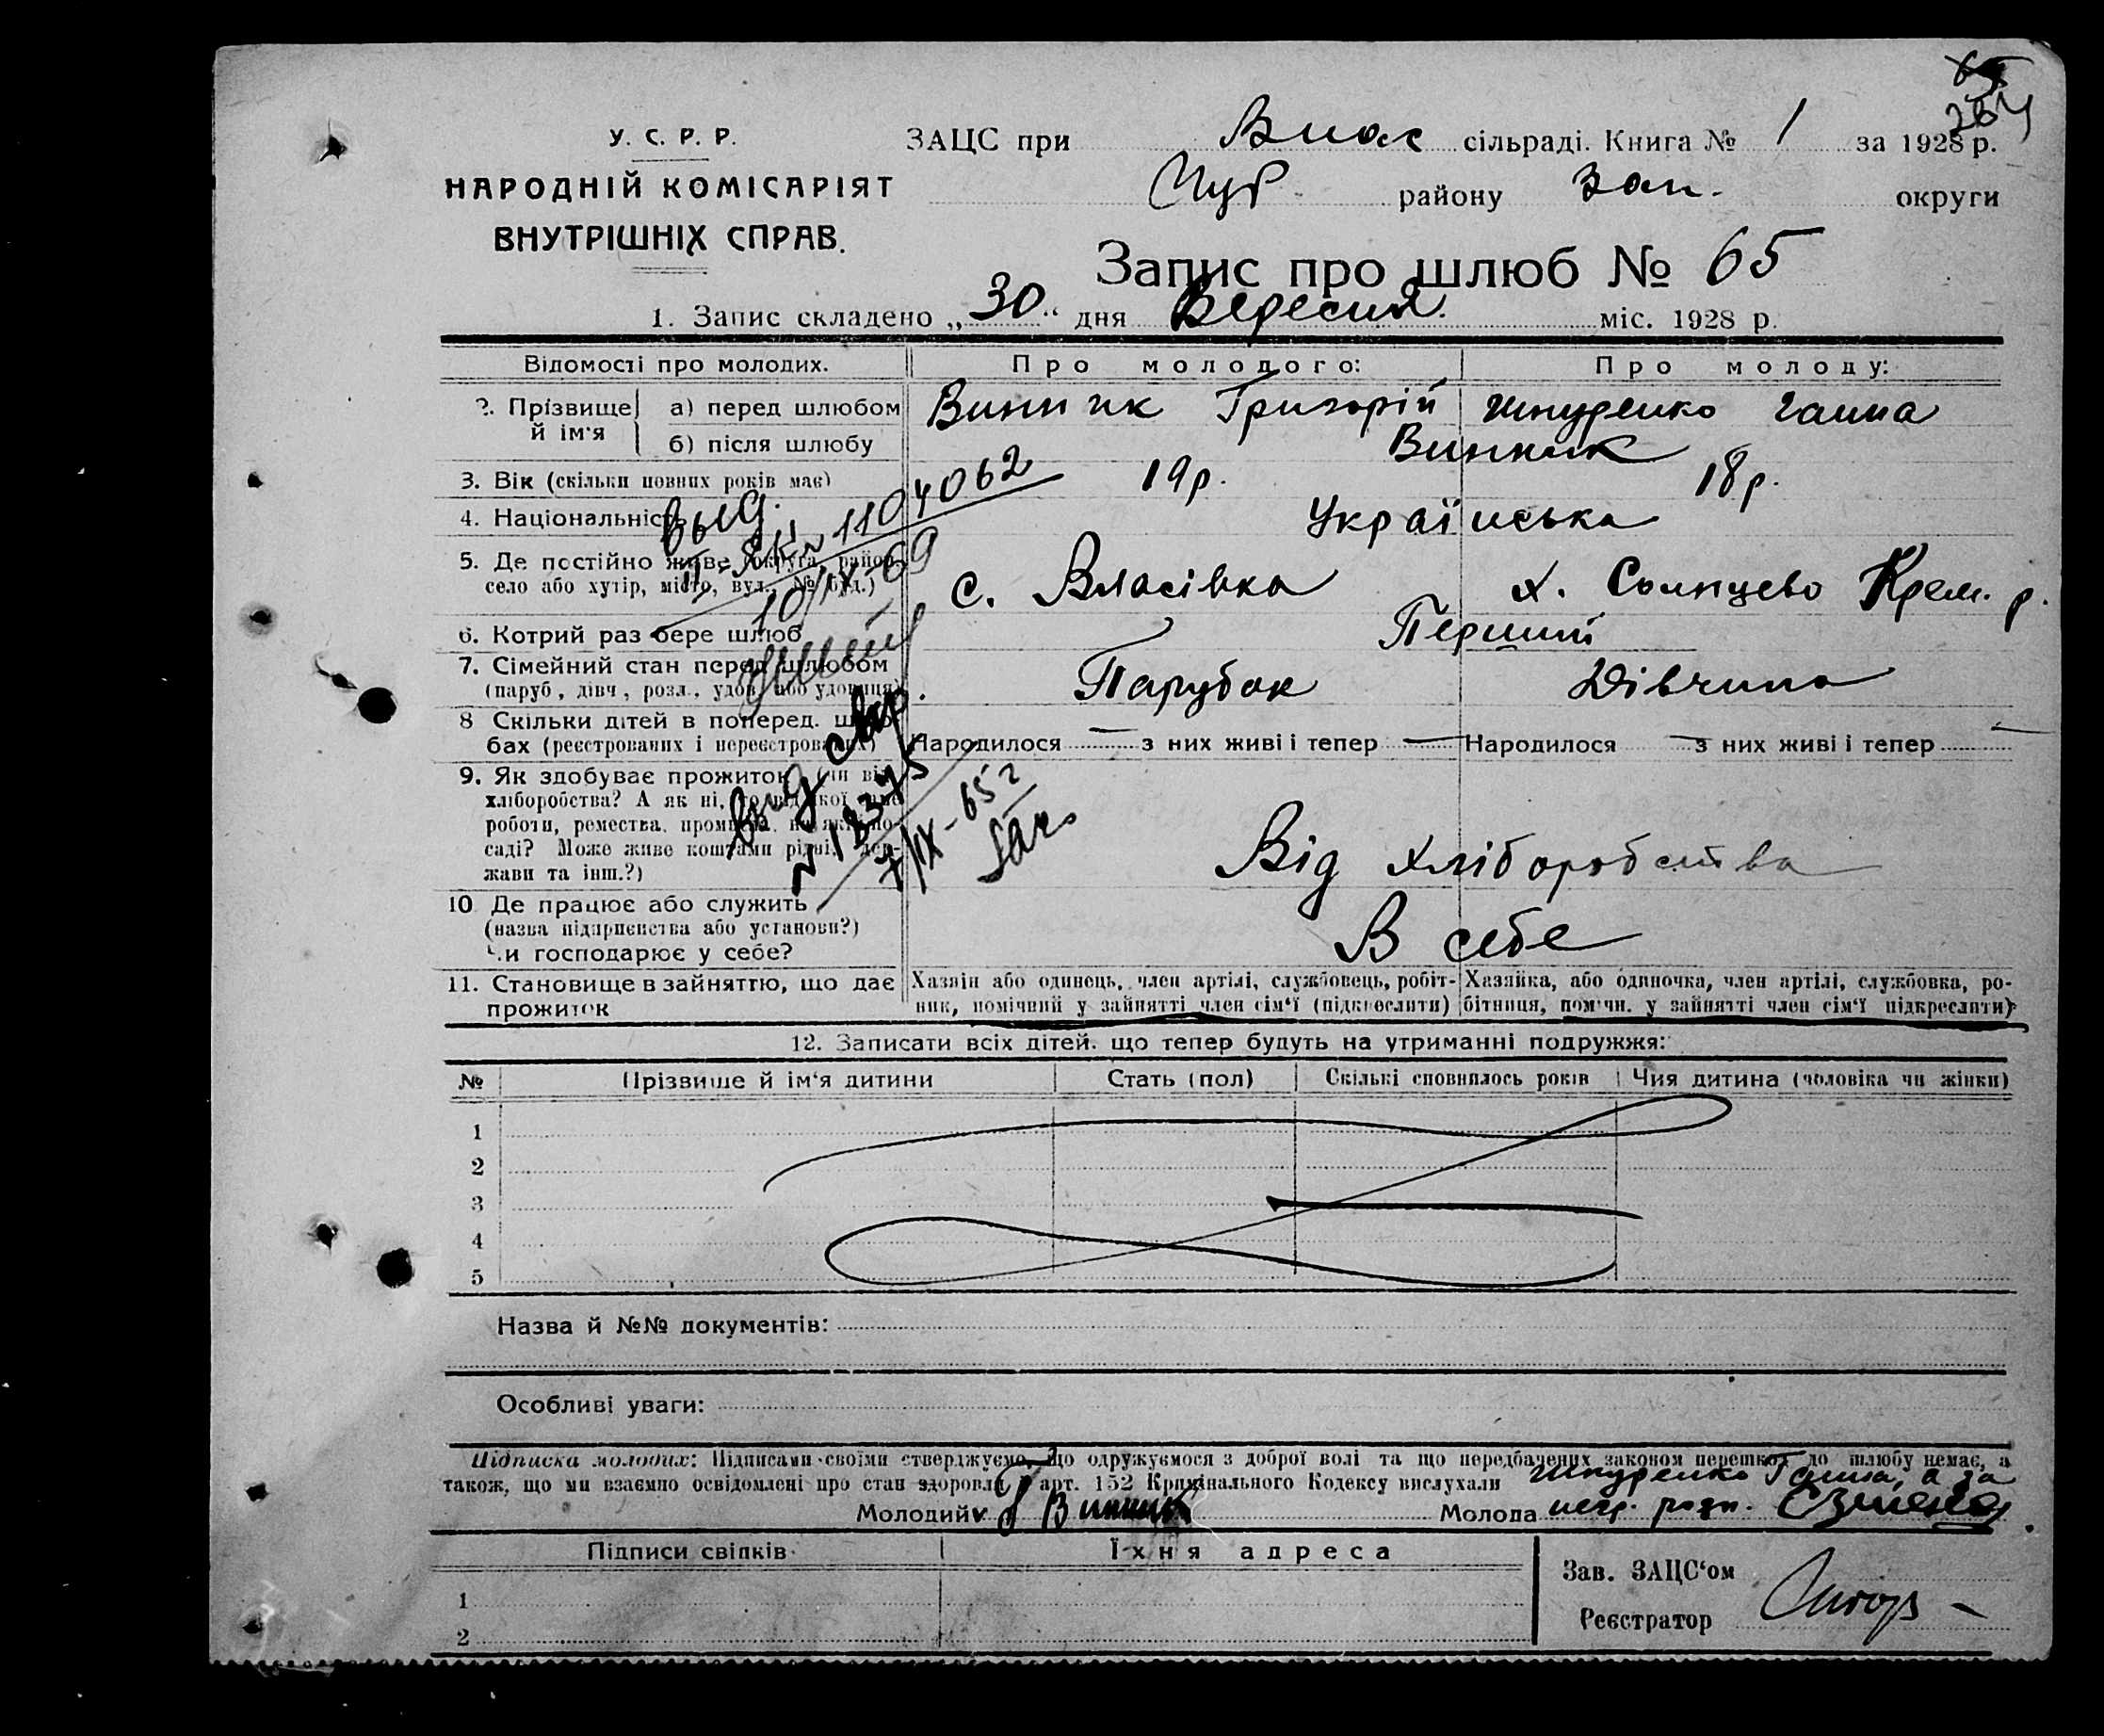 65
264
У. С. Р. Р.
НАРОДНІЙ КОМІСАРІЯТ
ВНУТРІШНІХ СПРАВ.
ЗАЦС при Влас сільраді. Книга № 1 за 1928 р.
району Зап. округи
Запис про шлюб № 65
1. Запис складено „30“ дня Вересня міс. 1928 р.
Відомості про молодих. Про молодого: Про молоду:
2. Прізвище й ім'я а) перед шлюбом Винник Григорій Шкуренко Ганна
б) після шлюбу Винник
3. Вік (скільки повних років має) 19р. 18р.
4. Національність Українська
5. Де постійно живе (округа, район,
село або хутір, місто, вул., № буд.) с. Власівка х. Солнцево Крем. р.
6. Котрий раз бере шлюб Перший
7. Сімейний стан перед шлюбом
(паруб., дівч., розл., удов. або удовиця) Парубок Дівчина
8 Скільки дітей в поперед. шлюбах (реєстрованих і нереєстрованих) Народилося — з них живі і тепер — Народилося — з них живі і тепер —
9. Як здобуває прожиток, чи від
хліборобства? А як ні, то від якої
роботи, ремества, промисла, на якій по-
саді? Може живе коштами рідні, дер-
жави та інш.?) Від хліборобства
10 Де працює або служить
(назва підприємства або установи?)
Чи господарює у себе? В себе
11. Становище в зайняттю, що дає
прожиток
Хазяїн або одинець, член артілі, службовець, робіт-
ник, помічний у зайнятті член сім'ї (підкреслити)
Хазяйка, або одиночка, член артілі, службовка, ро-
бітниця, помічн. у зайнятті член сім'ї підкреслити)
выд.
II-ЯК № 1104062
10/IX-69
выд свид
№ 18375
7/IX-65г
12. Записати всіх дітей, що тепер будуть на утриманні подружжя:
№ Прізвище й ім'я дитини Стать (пол) Скількі сповнилось років Чия дитина (чоловіка чи жінки)
1
2
3
4
5
Назва й №№ документів:
Особливі уваги:
Підписка молодих: Підписами своїми стверджуємо, що одружуємося з доброї волі та що передбачених законом перешкод до шлюбу немає, а
також, що ми взаємно освідомлені про стан здоровля й арт. 152 Кримінального Кодексу вислухали Шкуренко Ганна, а за
Молодий Г Винник Молода негр. розп.
Підписи свідків Їхня адреса
Зав. ЗАЦС'ом
1
Реєстратор
2